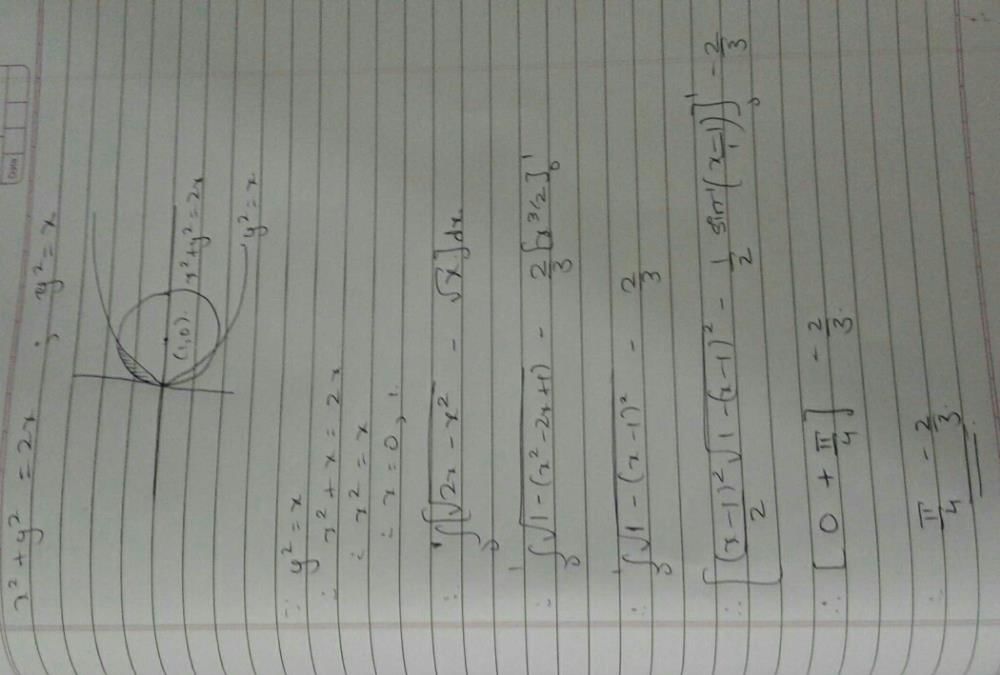 x² + y² = 2x ; y² = x
(1,0)
x²+y²=2x
y²=x
∵ y² = x
∴ x² + x = 2x
∴ x² = x
∴ x = 0, 1.
∴ ₀∫¹ [√(2x - x²) - √x] dx.
∴ ₀∫¹ √(1 - (x² - 2x + 1)) - 2/3 [x^3/2]₀¹
∴ ₀∫¹ √(1 - (x - 1)²) - 2/3
∴ [(x-1)²/2 √(1 - (x-1)²) - 1/2 sin⁻¹((x-1)/1)]₀¹ - 2/3
∴ [0 + π/4] - 2/3.
∴ π/4 - 2/3.